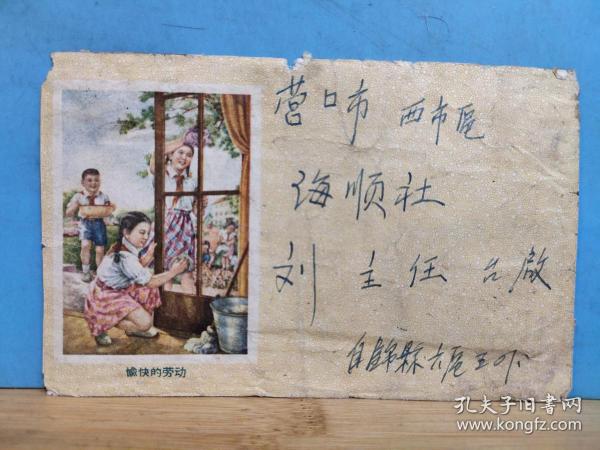 营口市 西市区
海顺社
刘主任 台啟
自錦縣六区
愉快的劳动
孔夫子旧书网
www.kongfz.com